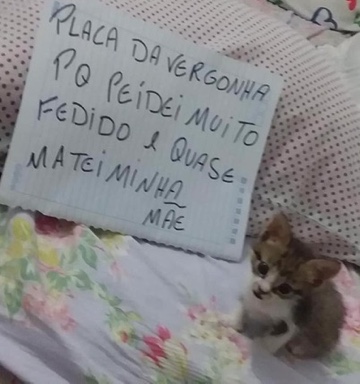 PLACA DA VERGONHA
PQ PEIDEI MUITO
FEDIDO E QUASE
MATEI MINHA
MÃE